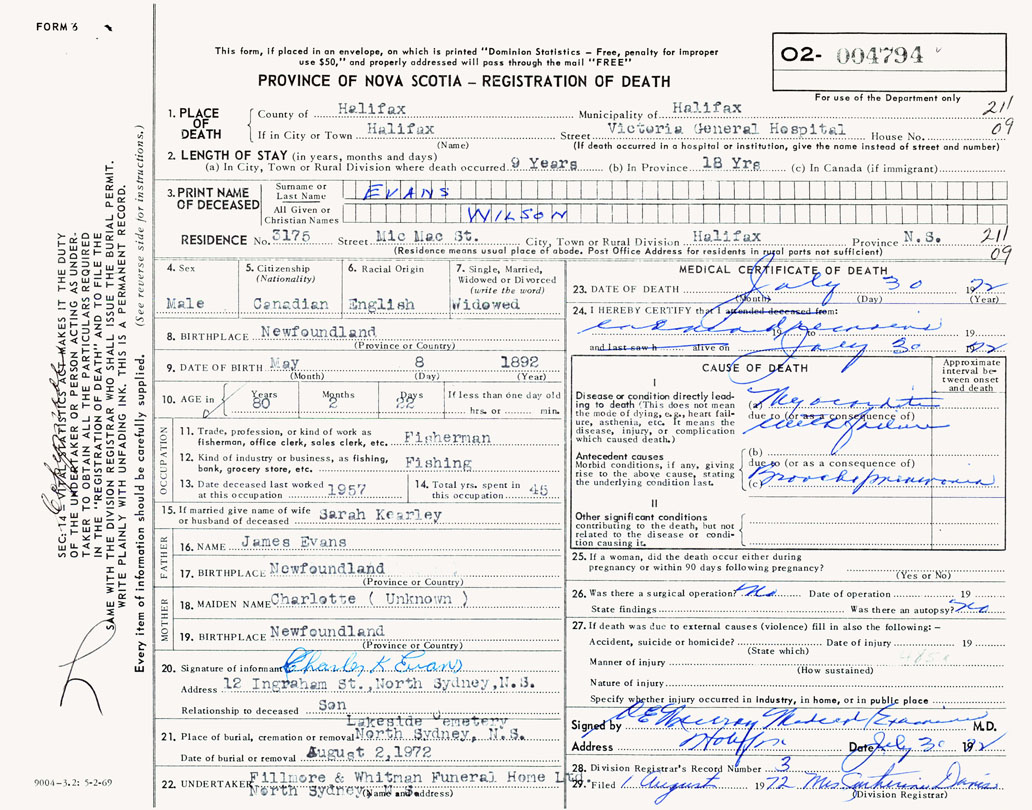 FORM 6
This form, if placed in an envelope, on which is printed "Dominion Statistics – Free, penalty for improper
use $50," and properly addressed will pass through the mail "FREE"
PROVINCE OF NOVA SCOTIA – REGISTRATION OF DEATH
O2- 004794
For use of the Department only
211
09
1. PLACE OF DEATH
County of Halifax Municipality of Halifax
If in City or Town Halifax Street Victoria General Hospital House No.
(Name) (If death occurred in a hospital or institution, give the name instead of street and number)
2. LENGTH OF STAY (in years, months and days)
(a) In City, Town or Rural Division where death occurred 9 Years (b) In Province 18 Yrs (c) In Canada (if immigrant)
3. PRINT NAME OF DECEASED
Surname or Last Name EVANS
All Given or Christian Names WILSON
RESIDENCE No. 3175 Street Mic Mac St. City, Town or Rural Division Halifax Province N.S.
211
09
(Residence means usual place of abode. Post Office Address for residents in rural parts not sufficient)
4. Sex
Male
5. Citizenship (Nationality)
Canadian
6. Racial Origin
English
7. Single, Married, Widowed or Divorced (write the word)
Widowed
8. BIRTHPLACE Newfoundland
(Province or Country)
9. DATE OF BIRTH May 8 1892
(Month) (Day) (Year)
10. AGE in Years Months Days If less than one day old
80 2 22 hrs. or min.
OCCUPATION
11. Trade, profession, or kind of work as
fisherman, office clerk, sales clerk, etc. Fisherman
12. Kind of industry or business, as fishing,
bank, grocery store, etc. Fishing
13. Date deceased last worked at this occupation 1957
14. Total yrs. spent in this occupation 45
15. If married give name of wife
or husband of deceased Sarah Kearley
FATHER
16. NAME James Evans
17. BIRTHPLACE Newfoundland
(Province or Country)
MOTHER
18. MAIDEN NAME Charlotte ( Unknown )
19. BIRTHPLACE Newfoundland
(Province or Country)
20. Signature of informant Charles K Evans
Address 12 Ingraham St., North Sydney, N.S.
Relationship to deceased Son
Lakeside Cemetery
21. Place of burial, cremation or removal North Sydney, N.S.
Date of burial or removal August 2, 1972
22. UNDERTAKER Fillmore & Whitman Funeral Home Ltd.
North Sydney, N.S.
(Name and address)
MEDICAL CERTIFICATE OF DEATH
23. DATE OF DEATH July 30 1972
(Month) (Day) (Year)
24. I HEREBY CERTIFY that I attended deceased from:
19 to 19
and last saw h alive on July 30 1972
CAUSE OF DEATH
Approximate interval between onset and death
I
Disease or condition directly lead-
ing to death (This does not mean
the mode of dying, e.g., heart fail-
ure, asthenia, etc. It means the
disease, injury, or complication
which caused death.)
(a) Myocarditis
due to (or as a consequence of)
with failure
Antecedent causes
Morbid conditions, if any, giving
rise to the above cause, stating
the underlying condition last.
(b)
due to (or as a consequence of)
(c) Bronchopneumonia
II
Other significant conditions
contributing to the death, but not
related to the disease or condi-
tion causing it.
25. If a woman, did the death occur either during
pregnancy or within 90 days following pregnancy?
(Yes or No)
26. Was there a surgical operation? No Date of operation 19
State findings Was there an autopsy? No
27. If death was due to external causes (violence) fill in also the following: –
Accident, suicide or homicide? Date of injury 19
(State which)
Manner of injury
(How sustained)
Nature of injury
Specify whether injury occurred in industry, in home, or in public place
Signed by D E Murray Medical Examiner M.D.
Address Halifax Date July 30 1972
28. Division Registrar's Record Number 3
29. Filed 1 August 1972 Mrs Catherine Davis
(Division Registrar)
SEC. 14 – VITAL STATISTICS ACT MAKES IT THE DUTY
OF THE UNDERTAKER OR PERSON ACTING AS UNDER-
TAKER TO OBTAIN ALL THE PARTICULARS REQUIRED
IN THE "REGISTRATION OF DEATH" AND TO FILE THE
SAME WITH THE DIVISION REGISTRAR WHO SHALL ISSUE THE BURIAL PERMIT.
WRITE PLAINLY WITH UNFADING INK. THIS IS A PERMANENT RECORD.
Every item of information should be carefully supplied. (See reverse side for instructions.)
9004-3.2: 5-2-69